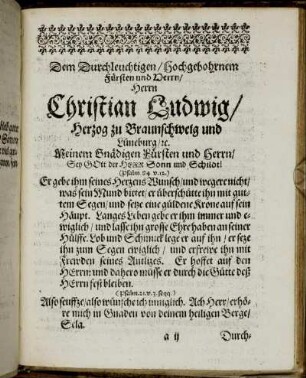 Dem Durchleuchtigen/Hochgebohrnem
Fürsten und Herrn/
Herrn
Christian Ludwig/
Herzog zu Braunschweig und
Lüneburg/ ꝛc.
Meinem Gnädigen Fürsten und Herrn/
Sey GOtt der HErr Sonn und Schildt!
(Psalm. 84. v. 12.)
Er gebe ihm seines Herzens Wunsch/ und wegere nicht/
was sein Mund bittet: er überschütte ihn mit gu-
tem Segen/ und setze eine güldene Krone auf sein
Haupt. Langes Leben gebe er ihm immer und e-
wiglich/ und lasse ihn grosse Ehre haben an seiner
Hülffe. Lob und Schmuck lege er auf ihn/ er setze
ihn zum Segen ewiglich/ und erfrewe ihn mit
Frewden seines Antlitzes. Er hoffet auf den
HErrn: und dahero müsse er durch die Güte deß
HErrn fest bleiben.
(Psalm. 21. v. 3. seqq.)
Also seuffze/ also wünsche ich inniglich. Ach Herr/ erhö-
re mich in Gnaden von deinem heiligen Berge/
Sela.
a ij Durch-